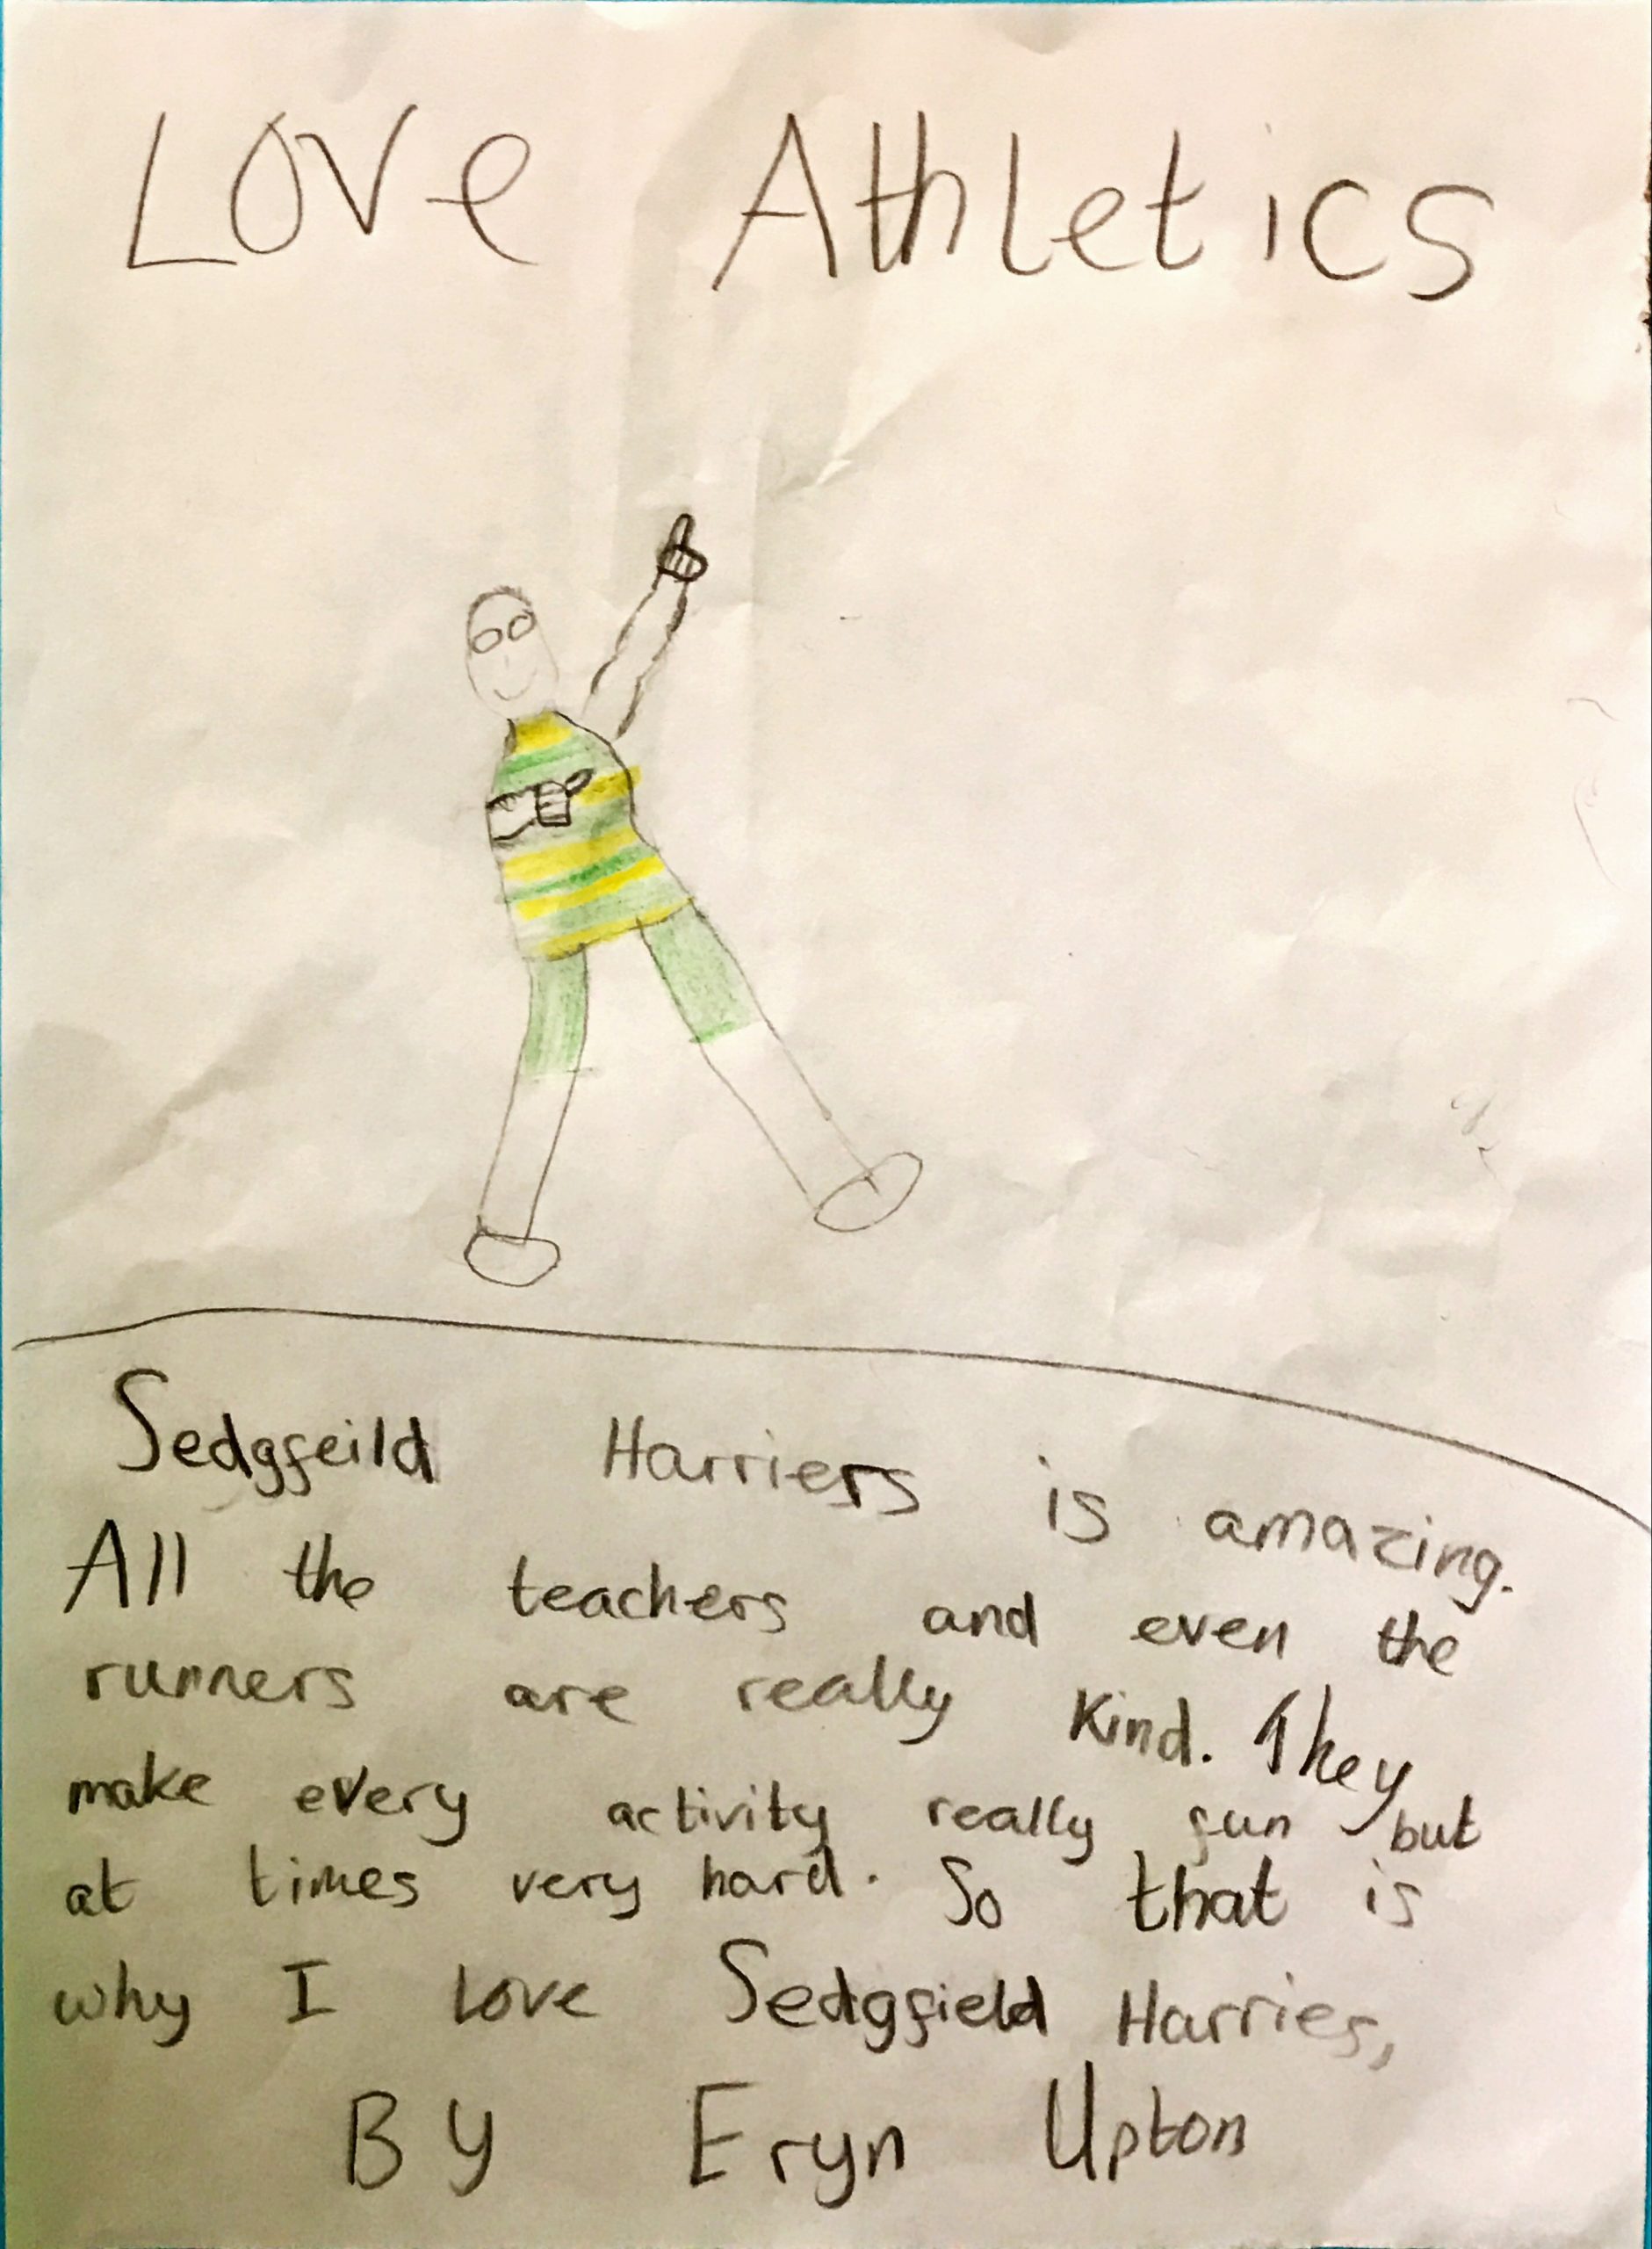 Love Athletics
Sedgfeild Harriers is amazing.
All the teachers and even the
runners are really kind. They
make every activity really fun but
at times very hard. So that is
why I love Sedgfield Harries,
By Eryn Upton